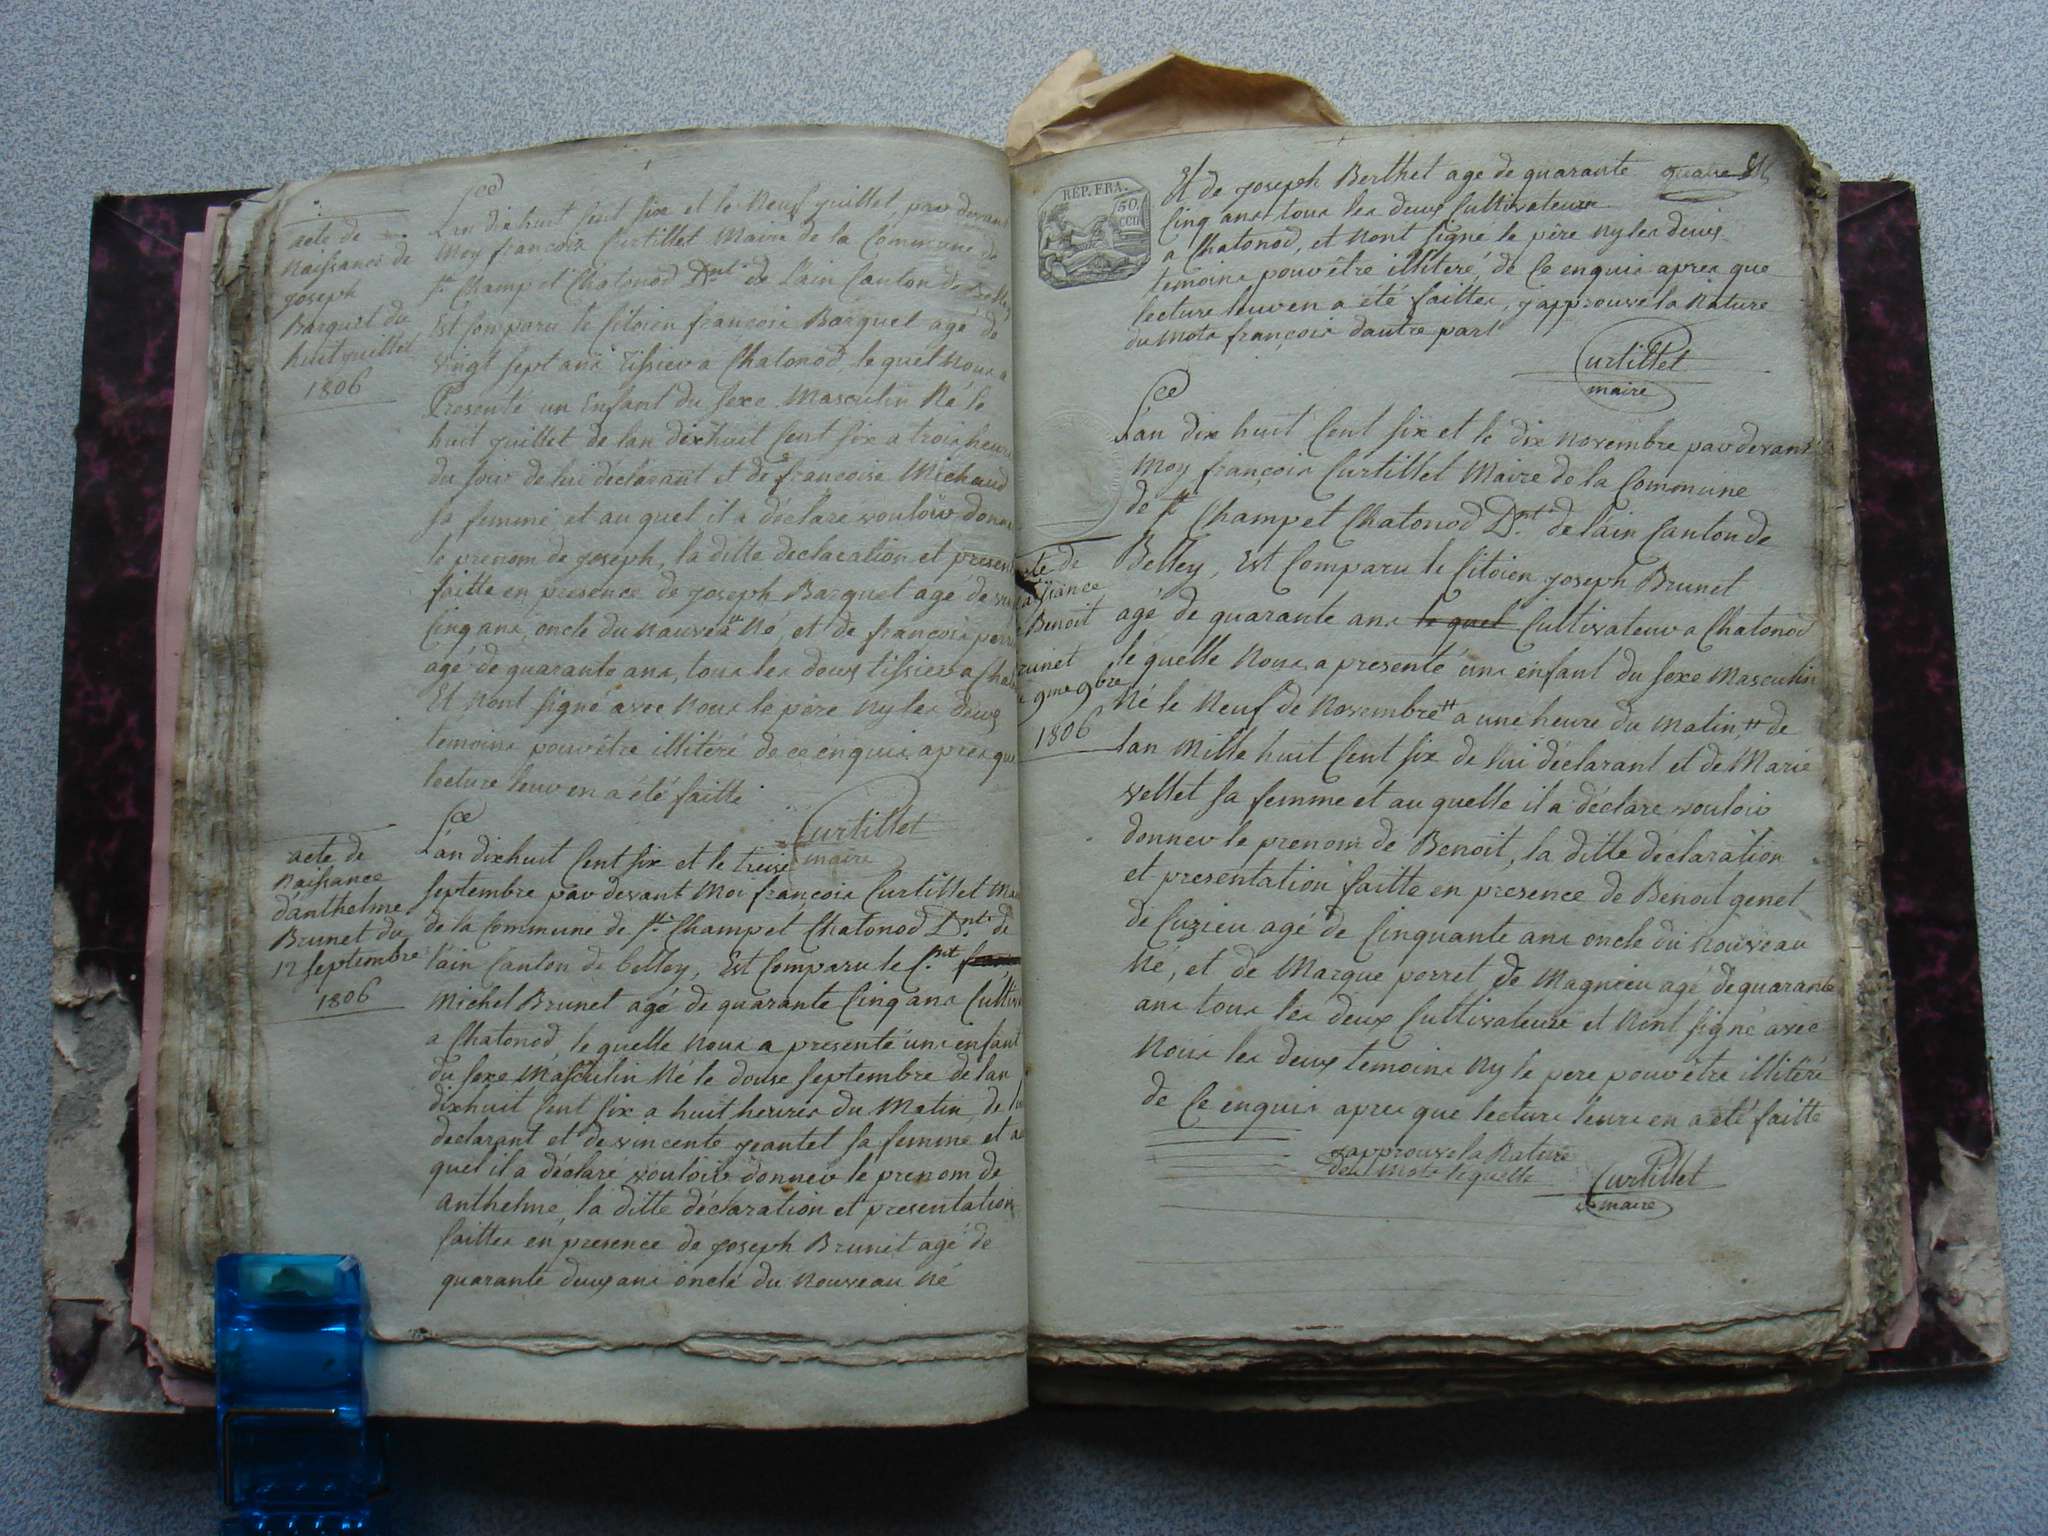 acte de
Naissance de
joseph
Barquet du
huit juillet
1806
Ce
Lan dix huit Cent six et le Neuf juillet par devant
Moy françois Curtillet Maire de la Commune de
St Champ et Chatonod Dnt de Lain Canton de Belley
Est Comparu le Citoien françois Barquet agé de
vingt sept ans Tissier a Chatonod le quel Nous a
Presenté un Enfant du sexe Masculin Né le
huit juillet de lan dix huit Cent six a trois heures
du soir de lui déclarant et de françoise Michaud
sa femme, et au quel il a déclaré vouloir donner
le prenom de joseph, la ditte declaration et present
faitte en presence de joseph Barquet agé de
Cinq ans, oncle du nouveau Né, et de françois perret
agé de quarante ans, tous les deux tissier a
Et Nont signé avec Nous le père Ny les deux
témoins pour être illitéré de ce énquis apres que
lecture leur en a été faitte
Curtillet
maire
acte de
Naissance
d'anthelme
Brunet du
12 septembre
1806
Ce
L'an dixhuit Cent six et le treize
septembre par devant Moi françois Curtillet
de la Commune de St Champ et Chatonod Dnt de
l'ain Canton de belley, Est Comparu le Cnt
Michel Brunet agé de quarante Cinq ans
a Chatonod, le quelle Nous a presenté une enfant
du sexe Masculin Né le douse septembre de lan
dixhuit Cent six a huit heures du Matin de
declarant et de vincente jeantet sa femme et
quel il a déclaré vouloir donner le prenom de
anthelme, la ditte déclaration et presentation
faittes en presence de joseph Brunet agé de
quarante deux ans oncle du Nouveau Né
REP. FRA.
50.
CEN
Et de joseph Berthet age de quarante
Cinq ans tous les deux Cultivateurs
a Chatonod, et Nont signé le père Ny les deux
temoins pour être illiteré, de Ce enquis apres que
lecture leur en a été faittes, j'approuve la Nature
du Mots françois dautre part
Curtillet
maire
Ce
L'an dix huit Cent six et le dix Novembre par devant
Moy françois Curtillet Maire de la Commune
de St Champ et Chatonod Dnt de l'ain Canton de
Belley, Est Comparu le Citoien joseph Brunet
agé de quarante ans le quel Cultivateur a Chatonod
le quelle Nous a presenté une enfant du sexe Masculin
Né le Neuf de Novembre a une heure du Matin de
lan Mille huit Cent six de lui déclarant et de Marie
vellet sa femme et au quelle il a déclare vouloir
donner le prenom de Benoit, la ditte déclaration
et presentation faitte en présence de Benoit genet
de Cuzieu agé de Cinquante ans oncle du Nouveau
Né, et de Marque perret de Magnieu agé de quarante
ans tous les deux Cultivateurs et Nont signé avec
Nous les deux temoins Ny le pere pour être illiteré
de Ce enquis apres que lecture leurs en a été faitte
japprouve la Nature
deu Mots lequelle
Curtillet
maire
acte de
Naissance
Benoit
Brunet
9me 9bre
1806